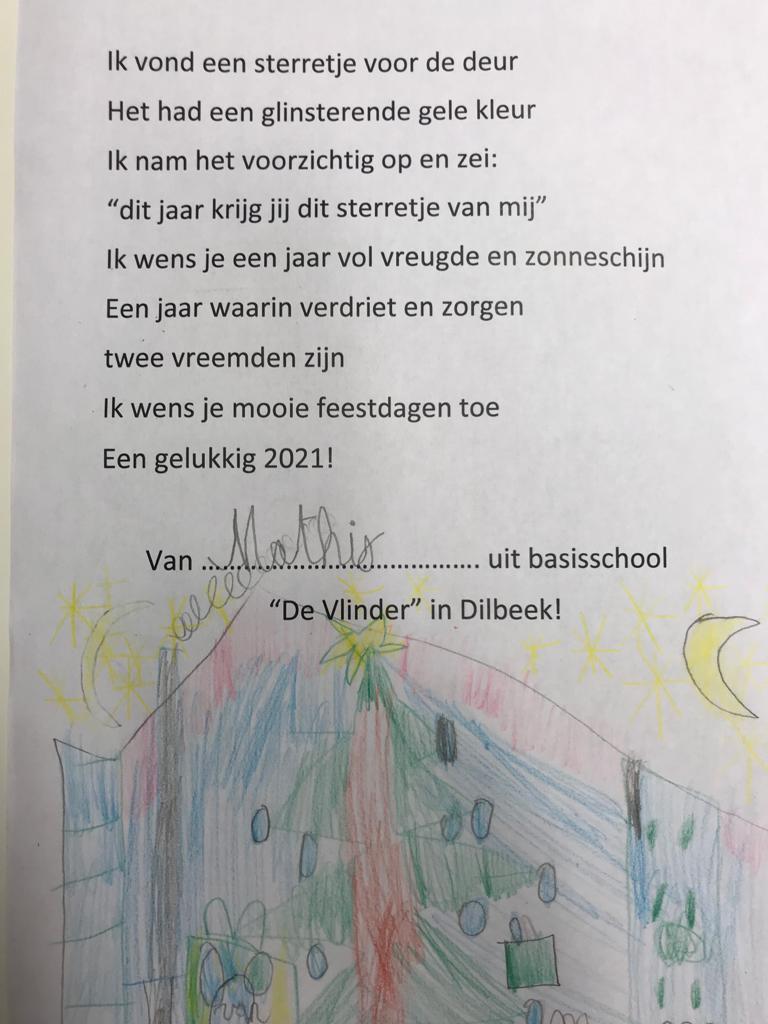 Ik vond een sterretje voor de deur
Het had een glinsterende gele kleur
Ik nam het voorzichtig op en zei:
“dit jaar krijg jij dit sterretje van mij”
Ik wens je een jaar vol vreugde en zonneschijn
Een jaar waarin verdriet en zorgen
twee vreemden zijn
Ik wens je mooie feestdagen toe
Een gelukkig 2021!
Van ...Mathis................ uit basisschool
“De Vlinder” in Dilbeek!